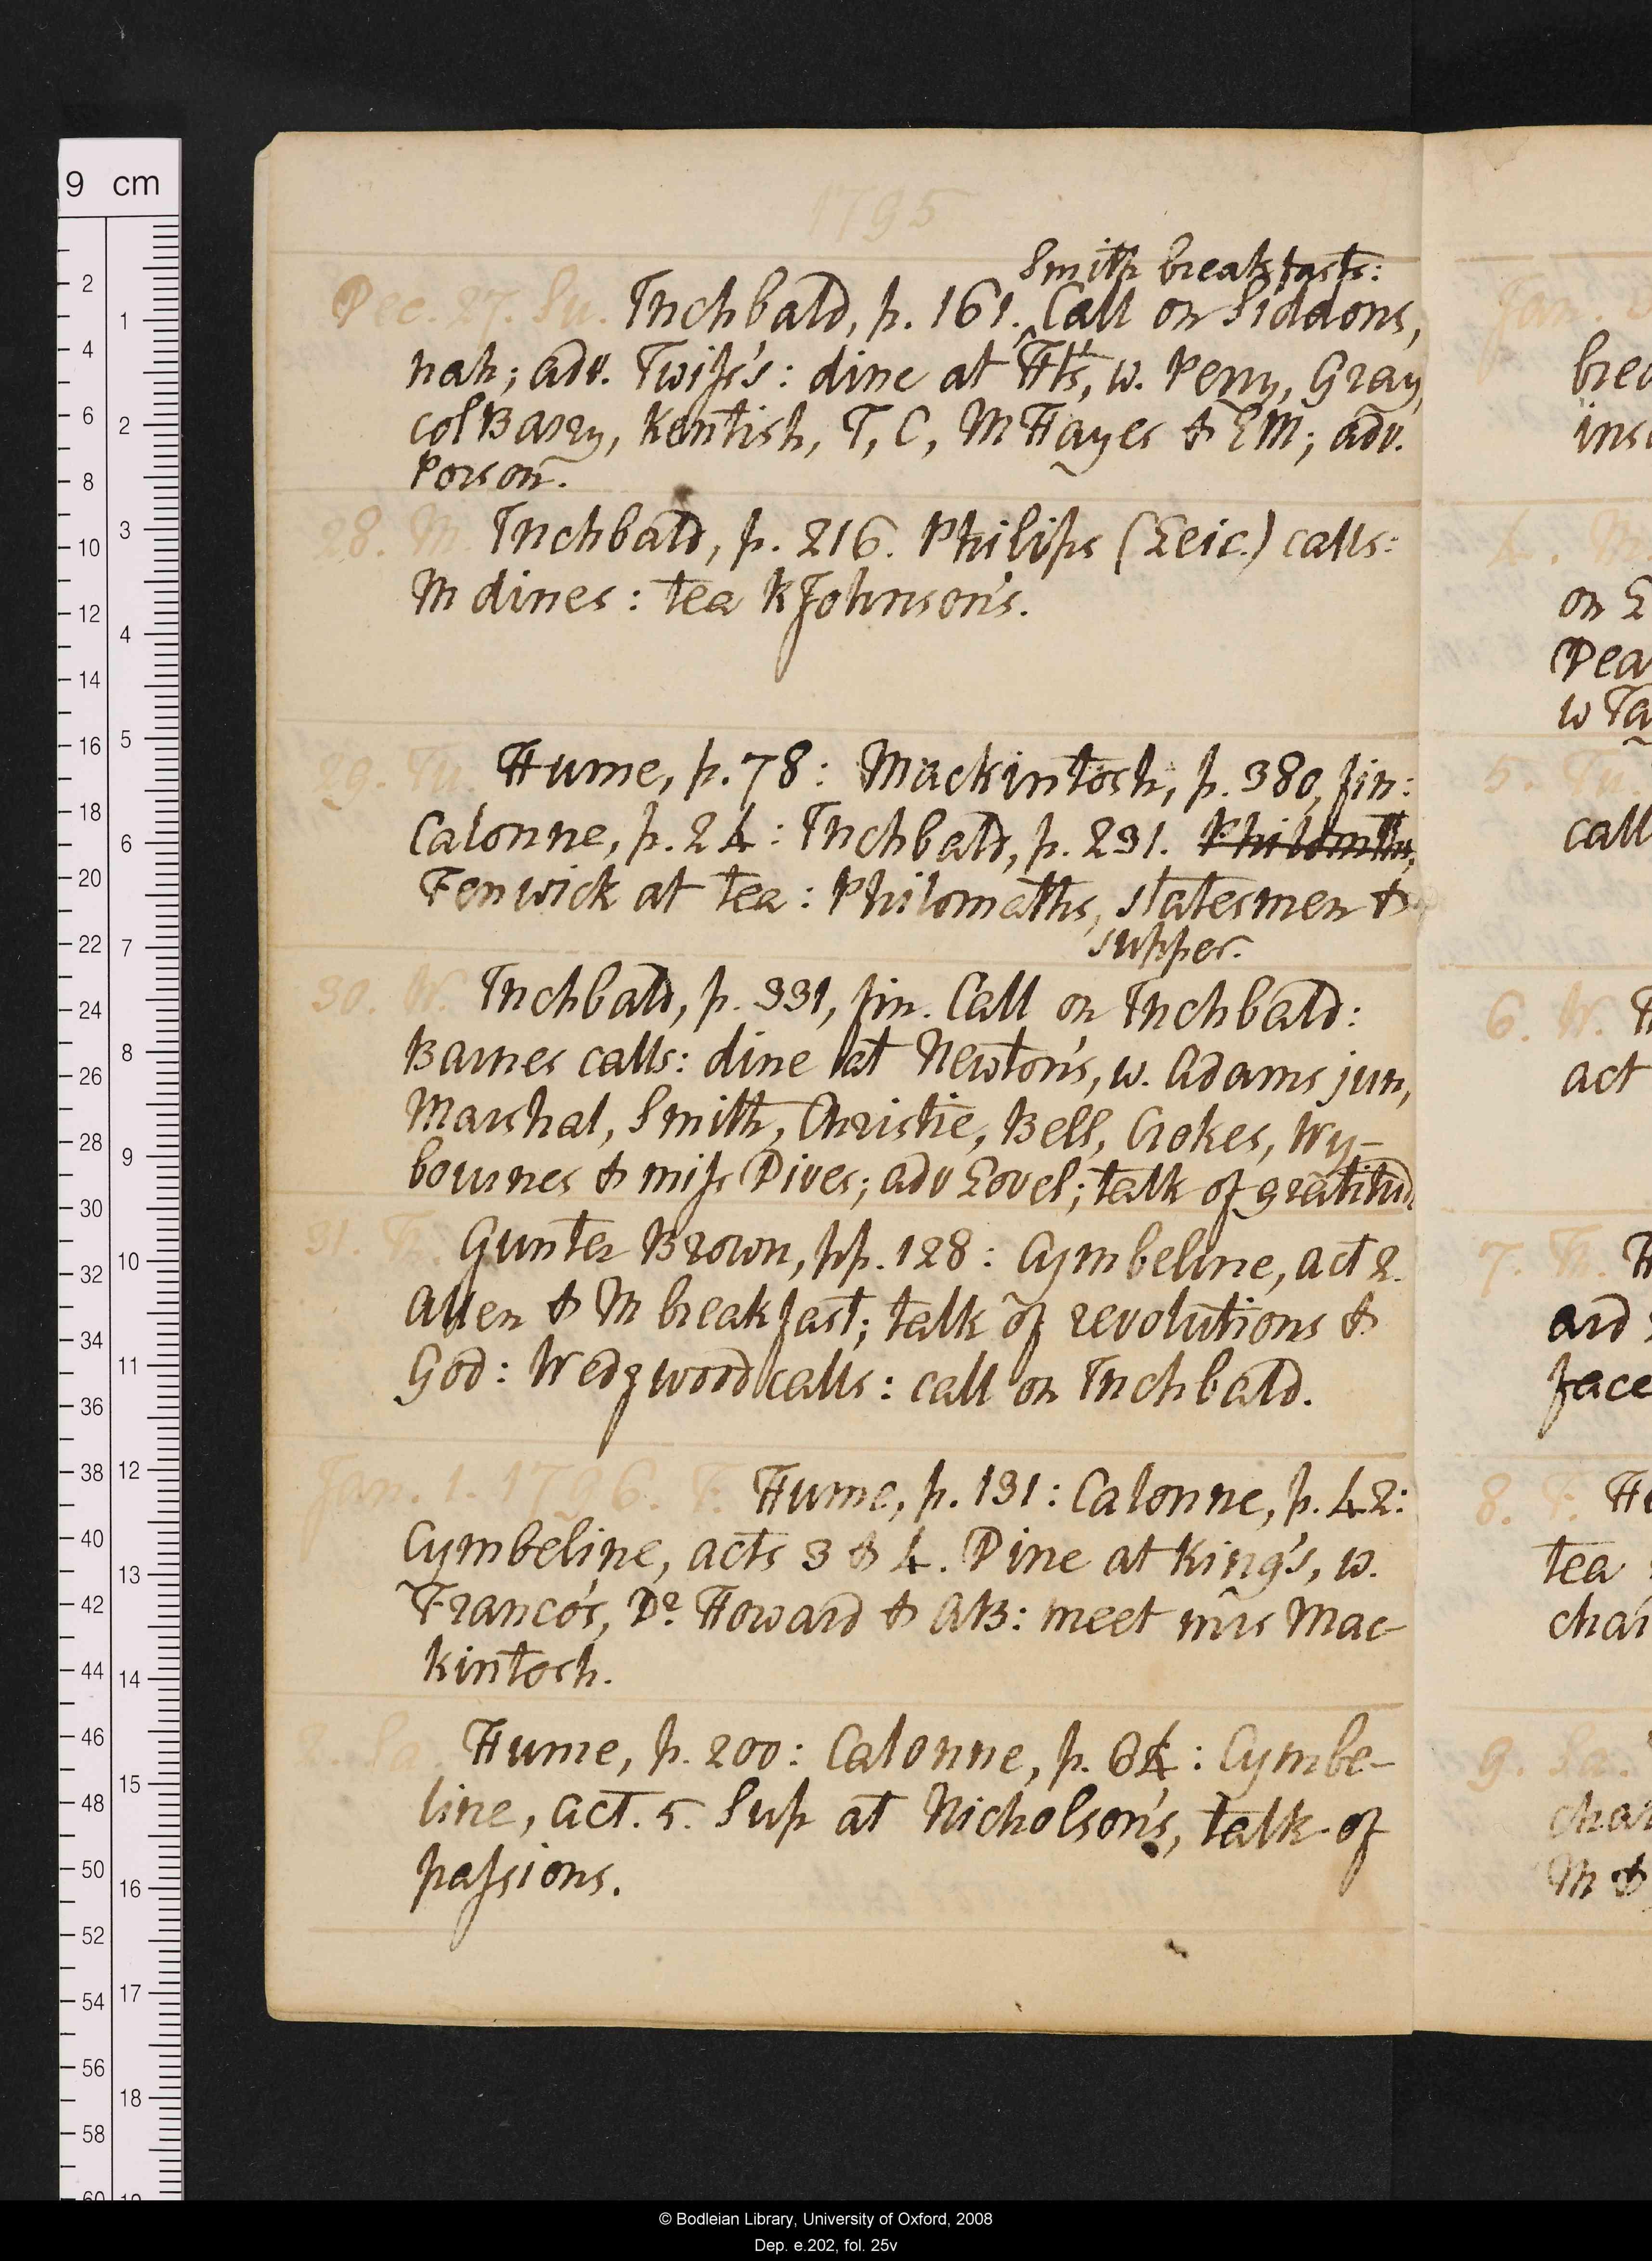 1795
Smith breakfasts:
Dec. 27. Su. Inchbald, p. 161. ‸ Call on Siddons,
nah; adv. Twiſs's: dine at Ht's, w. Perry, Gray,
col Barry, Kentish, T, C, M Hayes & EM; adv.
Porson.
28. M. Inchbald, p. 216. Philips (Leic.) calls:
M dines: tea K Johnson's.
29. Tu. Hume, p. 78: Mackintosh, p. 380, fin:
Calonne, p. 24: Inchbald, p. 231.
Fenwick at tea: Philomaths, statesmen &
supper.
30. W. Inchbald, p. 331, fin. Call on Inchbald:
Barnes calls: dine at Newton's, w. Adams jun,
Marshal, Smith, Christie, Bell, Crokes, Wy-
bournes & miſs Dives; adv Lovel; talk of gratitud
31. Th. Gunter Brown, pp. 128: Cymbeline, act 2.
Allen & M breakfast; talk of revolutions &
God: Wedgwood calls: call on Inchbald.
Jan. 1. 1796. F. Hume, p. 131: Calonne, p. 42:
Cymbeline, acts 3 & 4. Dine at King's, w.
Franco's, Dr Howard & AB: meet mrs Mac-
kintosh.
2. Sa. Hume, p. 200: Calonne, p. 64: Cymbe-
line, act. 5. Sup at Nicholson's, talk of
paſsions.
Jan.
brea
4. M
on L
Dea
w Ta
5. Tu.
call
6. W. H
act
7. Th. H
ard
face
8. F. H
tea
9. Sa.
M &
9 cm
2 4 6 8 10 12 14 16 18 20 22 24 26 28 30 32 34 36 38 40 42 44 46 48 50 52 54 56 58 60
1 2 3 4 5 6 7 8 9 10 11 12 13 14 15 16 17 18 19
© Bodleian Library, University of Oxford, 2008
Dep. e.202, fol. 25v